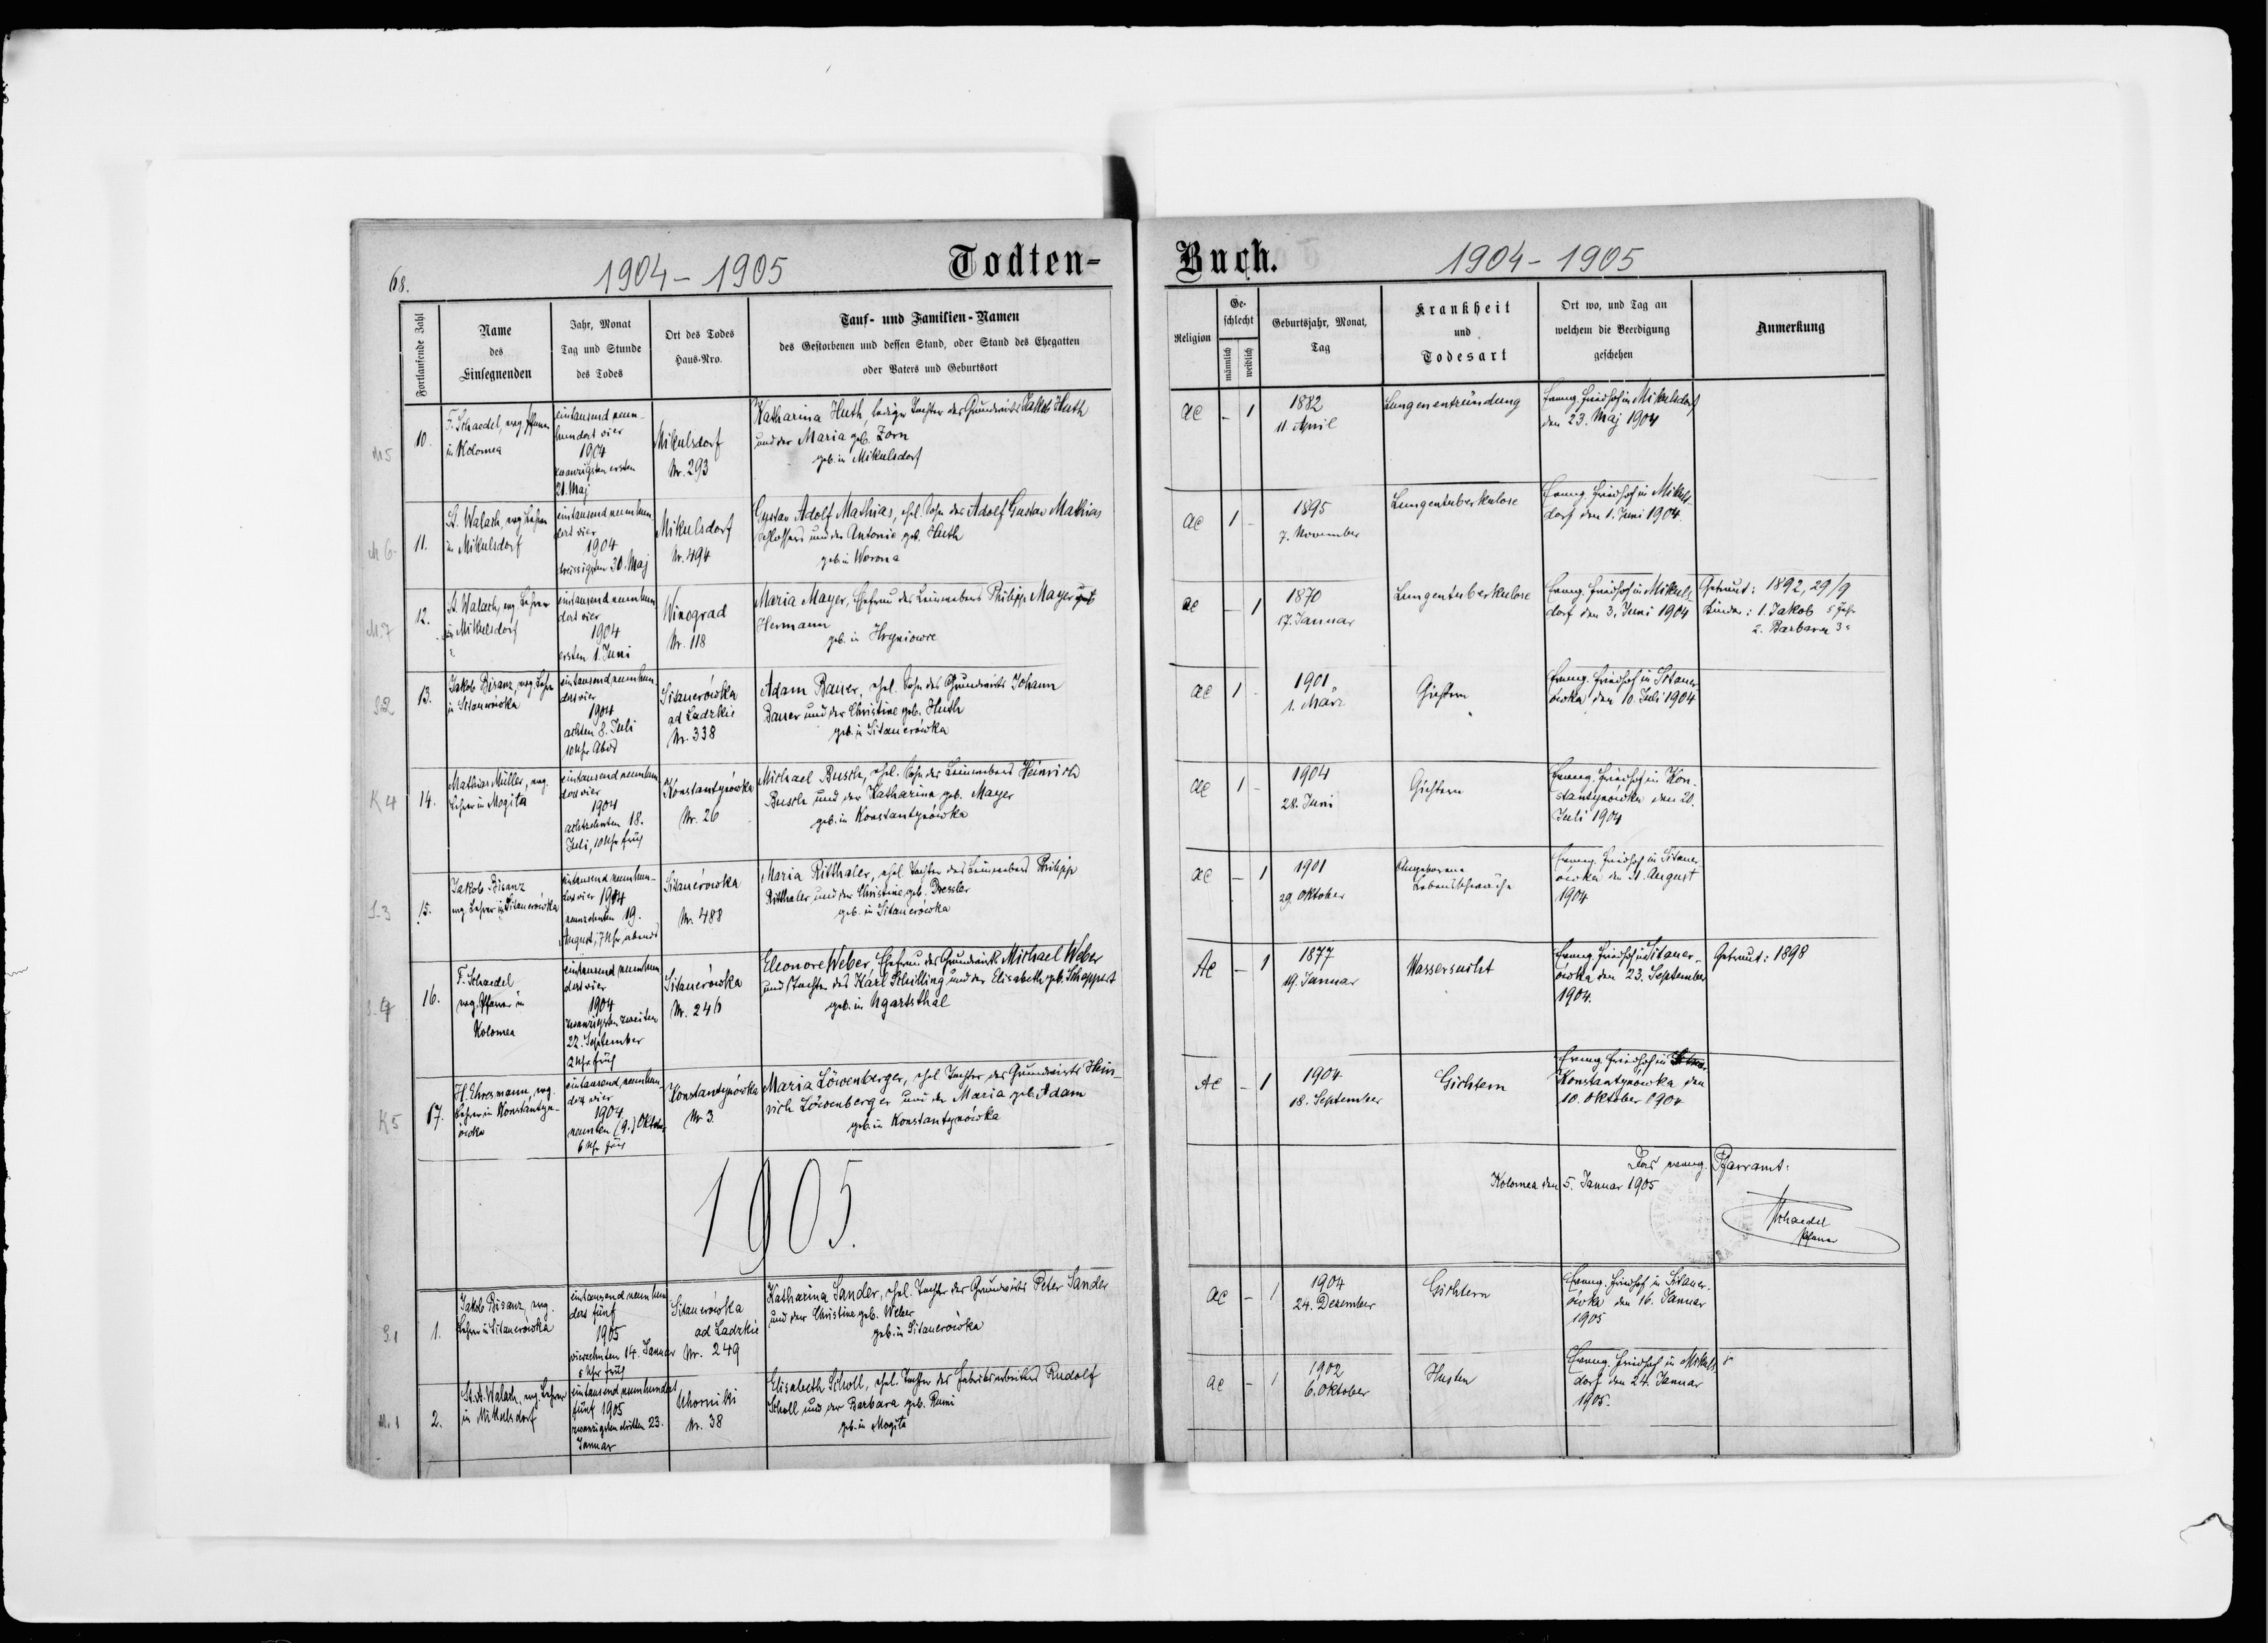 68.
1904 - 1905
Todten-
Fortlaufende Zahl
Name
des
Einsegnenden
Jahr, Monat
Tag und Stunde
des Todes
Ort des Todes
Haus-Nro.
Tauf- und Familien-Namen
des Gestorbenen und dessen Stand, oder Stand des Ehegatten
oder Vaters und Geburtsort
M 5
10.
F. Schaedel, evg. Pfarrer
in Kolomea
eintausend neun-
hundert vier
1904
zwanzigsten ersten
21. Maj
Mikulsdorf
Nr. 293
Katharina Huth, ledige Tochter des Grundwirts Jakob Huth
und der Maria geb. Zorn
geb. in Mikulsdorf
M 6
11.
St. Walach, evg. Lehrer
in Mikulsdorf
eintausend neunhun
dert vier
1904
dreissigsten 30. Maj
Mikulsdorf
Nr. 494
Gustav Adolf Mathias, ehel. Sohn des Adolf Gustav Mathias
Schlossers und der Antonie geb. Huth
geb. in Worona
M. 7
12.
St. Walach, evg. Lehrer
in Mikulsdorf
eintausend neunhun
dert vier
1904
ersten 1. Juni
Winograd
Nr. 118
Maria Mayer, Ehefrau des Leinwebers Philipp Mayer geb
Hermann
geb. in Hryniowce
S 2
13.
Jakob Bisanz, evg. Lehrer
in Sitauerówka
eintausend neunhun-
dert vier
1904
achten 8. Juli
10 Uhr Abds
Sitauerówka
ad Ladzkie
Nr. 338
Adam Bauer, ehel. Sohn des Grundwirts Johann
Bauer und der Christine geb. Huth
geb. in Sitauerówka
K 4
14.
Mathias Müller, evg.
Lehrer in Mogiła
eintausend neunhun
dert vier
1904
achtzehnten 18.
Juli, 10 Uhr früh
Konstantynówka
Nr. 26
Michael Busch, ehel. Sohn des Leinwebers Heinrich
Busch und der Katharina geb. Mayer
geb. in Konstantynówka
S. 3
15.
Jakob Bisanz
evg. Lehrer in Sitauerówka
eintausend neunhun-
dert vier 1904
neunzehnten 19.
August, 7 Uhr abends
Sitauerówka
Nr. 488
Maria Ritthaler, ehel. Tochter des Leinwebers Philipp
Ritthaler und der Christine geb. Dressler
geb. in Sitauerówka
S. 4
16.
F. Schaedel
evg. Pfarrer in
Kolomea
eintausend neunhun
dert vier
1904
zwanzigsten zweiten
22. September
2 Uhr früh
Sitauerówka
Nr. 246
Eleonore Weber Ehefrau des Grundwirts Michael Weber
und Tochter des Karl Schilling und der Elisabeth geb. Scheppert
geb. in Ugartsthal
K 5
17.
H. Ehresmann, evg.
Lehrer in Konstantyn-
ówka
eintausend neunhun-
dert vier
1904
neunten (9.) Oktober
6 Uhr früh
Konstantynówka
Nr 3.
Maria Löwenberger, ehel. Tochter des Grundwirts Hein-
rich Löwenberger und der Maria geb. Adam
geb. in Konstantynówka
1905.
S. 1
1.
Jakob Bisanz, evg.
Lehrer in Sitauerówka
eintausend neunhun
dert fünf
1905
vierzehnten 14. Januar
5 Uhr früh
Sitauerówka
ad Ladzkie
Nr. 249
Katharina Sander, ehel. Tochter des Grundwirts Peter Sander
und der Christine geb. Weber
geb. in Sitauerówka
M. 1
2.
St. A. Walach, evg. Lehrer
in Mikulsdorf
eintausend neunhundert
fünf 1905
zwanzigsten dritten 23.
Januar
Nr. 38
Elisabeth Scholl, ehel. Tochter des Fabriksarbeiters Rudolf
Scholl und der Barbara geb. Rumi
geb. in Mogiła
Buch.
1904 - 1905
Religion
Ge-
schlecht
männlich
weiblich
Geburtsjahr, Monat,
Tag
Krankheit
und
Todesart
Ort wo, und Tag an
welchem die Beerdigung
geschehen
Anmerkung
AC - 1
1882
11. April
Lungenentzündung
Evang. Friedhof in Mikulsdorf
den 23. Maj 1904
AC 1 -
1895
7. November
Lungentuberkulose
Evang. Friedhof in Mikuls-
dorf den 1. Juni 1904.
AC - 1
1870
17. Januar
Lungentuberkulose
Evang. Friedhof in Mikuls-
dorf den 3. Juni 1904
Getraut: 1892, 29/9
Kinder: 1. Jakob 5 Jahr
2. Barbara 3 "
AC 1 -
1901
1. März
Gichtern
Evang. Friedhof in Sitauer
ówka den 10. Juli 1904
AC 1 -
1904
28. Juni
Gichtern
Evang. Friedhof in Kon-
stantynówka den 20.
Juli 1904
AC - 1
1901
29. Oktober
Angeborene
Lebensschwäche
Evang. Friedhof in Sitauer-
ówka den 21. August
1904
AC - 1
1877
19. Januar
Wassersucht
Evang. Friedhof in Sitauer-
ówka den 23. September
1904.
Getraut: 1898
AC - 1
1904
18. September
Gichtern
Evang. Friedhof in
Konstantynówka den
10. Oktober 1904
Das evang. Pfarramt:
Kolomea den 5. Januar 1905
Schaedel
Pfarrer
AC - 1
1904
24. Dezember
Gichtern
Evang. Friedhof in Sitauer-
ówka den 16. Januar
1905
AC - 1
1902
6. Oktober
Husten
Evang. Friedhof in Mikuls
dorf den 24. Januar
1905.